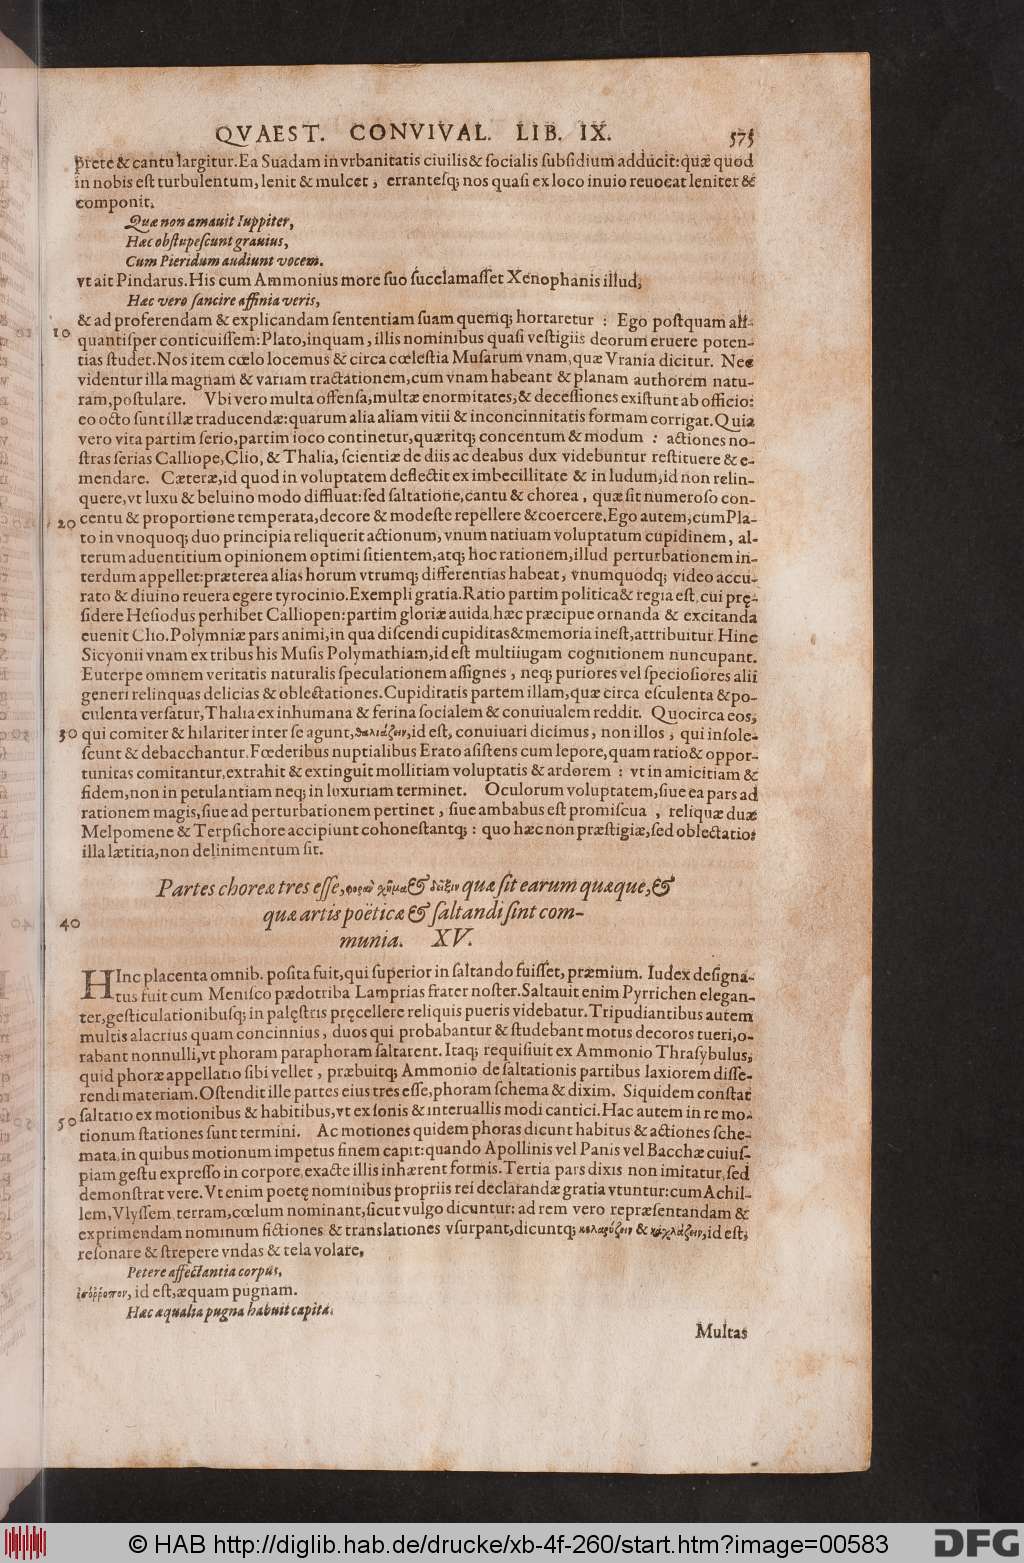 QVAEST. CONVIVAL. LIB. IX. 575
prete & cantu largitur. Ea Suadam in vrbanitatis ciuilis & socialis subsidium adducit: quæ quod
in nobis est turbulentum, lenit & mulcet, errantesq; nos quasi ex loco inuio reuocat leniter &
componit.
Quæ non amauit Iuppiter,
Hæc obstupescunt grauius,
Cum Pieridum audiunt vocem.
vt ait Pindarus. His cum Ammonius more suo sucelamasset Xenophanis illud,
Hæc vero sancire affinia veris,
& ad proferendam & explicandam sententiam suam quemq; hortaretur : Ego postquam ali-
10 quantisper conticuissem: Plato, inquam, illis nominibus quasi vestigiis deorum eruere poten-
tias studet. Nos item cœlo locemus & circa cœlestia Musarum vnam, quæ Vrania dicitur. Nec
videntur illa magnam & variam tractationem, cum vnam habeant & planam authorem natu-
ram, postulare. Vbi vero multa offensa, multæ enormitates, & decessiones existunt ab officio:
eo octo sunt illæ traducendæ: quarum alia aliam vitii & inconcinnitatis formam corrigat. Quia
vero vita partim serio, partim ioco continetur, quæritq; concentum & modum : actiones no-
stras serias Calliope, Clio, & Thalia, scientiæ de diis ac deabus dux videbuntur restituere & e-
mendare. Cæteræ, id quod in voluptatem deflectit ex imbecillitate & in ludum, id non relin-
quere, vt luxu & beluino modo diffluat: sed saltatione, cantu & chorea, quæ sit numeroso con-
20 centu & proportione temperata, decore & modeste repellere & coercere. Ego autem, cum Pla-
to in vnoquoq; duo principia reliquerit actionum, vnum natiuam voluptatum cupidinem, al-
terum aduentitium opinionem optimi sitientem, atq; hoc rationem, illud perturbationem in-
terdum appellet: præterea alias horum vtrumq; differentias habeat, vnumquodq; video accu-
rato & diuino reuera egere tyrocinio. Exempli gratia. Ratio partim politica & regia est, cui prę-
sidere Hesiodus perhibet Calliopen: partim gloriæ auida, hæc præcipue ornanda & excitanda
euenit Clio. Polymniæ pars animi, in qua discendi cupiditas & memoria inest, attribuitur. Hinc
Sicyonii vnam ex tribus his Musis Polymathiam, id est multiiugam cognitionem nuncupant.
Euterpe omnem veritatis naturalis speculationem assignes, neq; puriores vel speciosiores alii
generi relinquas delicias & oblectationes. Cupiditatis partem illam, quæ circa esculenta & po-
culenta versatur, Thalia ex inhumana & ferina socialem & conuiualem reddit. Quocirca eos,
30 qui comiter & hilariter inter se agunt, θαλιάζειν, id est, conuiuari dicimus, non illos, qui insole-
scunt & debacchantur. Fœderibus nuptialibus Erato asistens cum lepore, quam ratio & oppor-
tunitas comitantur, extrahit & extinguit mollitiam voluptatis & ardorem : vt in amicitiam &
fidem, non in petulantiam neq; in luxuriam terminet. Oculorum voluptatem, siue ea pars ad
rationem magis, siue ad perturbationem pertinet, siue ambabus est promiscua, reliquæ duæ
Melpomene & Terpsichore accipiunt cohonestantq; : quo hæc non præstigiæ, sed oblectatio:
illa lætitia, non delinimentum sit.
Partes choreæ tres esse, φορὰν χῆμα & δεῖξιν quæ sit earum quæque, &
40 quæ artis poëticæ & saltandi sint com-
munia. XV.
HInc placenta omnib. posita fuit, qui superior in saltando fuisset, præmium. Iudex designa-
tus fuit cum Menisco pædotriba Lamprias frater noster. Saltauit enim Pyrrichen elegan-
ter, gesticulationibusq; in palęstris pręcellere reliquis pueris videbatur. Tripudiantibus autem
multis alacrius quam concinnius, duos qui probabantur & studebant motus decoros tueri, o-
rabant nonnulli, vt phoram paraphoram saltarent. Itaq; requisiuit ex Ammonio Thrasybulus,
quid phoræ appellatio sibi vellet, præbuitq; Ammonio de saltationis partibus laxiorem disse-
rendi materiam. Ostendit ille partes eius tres esse, phoram schema & dixim. Siquidem constat
saltatio ex motionibus & habitibus, vt ex sonis & interuallis modi cantici. Hac autem in re mo-
50 tionum stationes sunt termini. Ac motiones quidem phoras dicunt habitus & actiones sche-
mata, in quibus motionum impetus finem capit: quando Apollinis vel Panis vel Bacchæ cuius-
piam gestu expresso in corpore, exacte illis inhærent formis. Tertia pars dixis non imitatur, sed
demonstrat vere. Vt enim poetę nominibus propriis rei declarandæ gratia vtuntur: cum Achil-
lem, Vlyssem, terram, cœlum nominant, sicut vulgo dicuntur: ad rem vero repræsentandam &
exprimendam nominum fictiones & translationes vsurpant, dicuntq; κελαρύζειν & καχλάζειν, id est,
resonare & strepere vndas & tela volare,
Petere affectantia corpus,
ἰσόῤῥοπον, id est, æquam pugnam.
Hæc æqualia pugna habuit capita.
Multas
© HAB http://diglib.hab.de/drucke/xb-4f-260/start.htm?image=00583
DFG